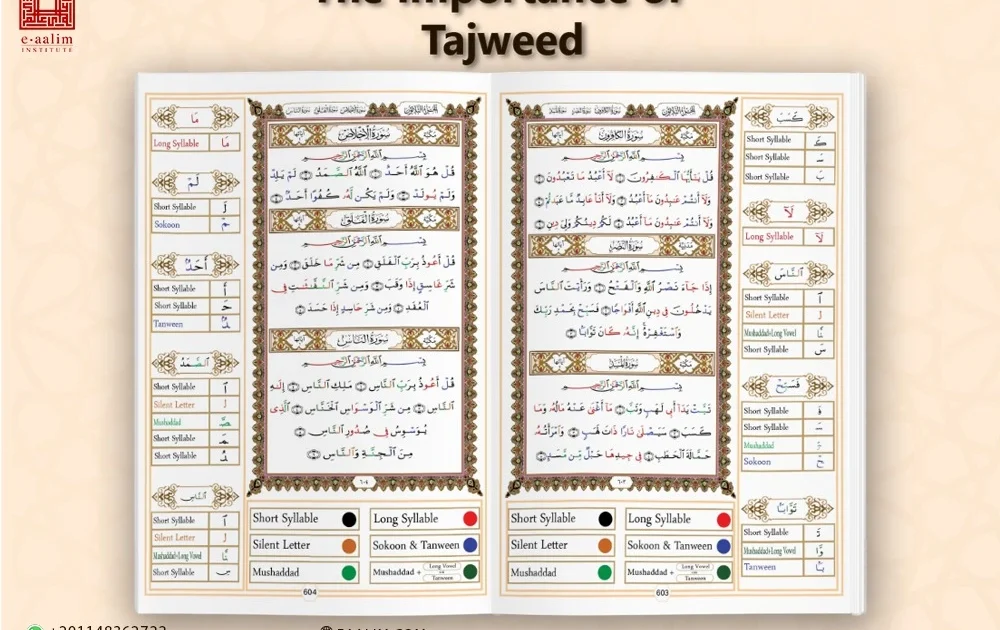 e-aalim
INSTITUTE
The Importance of
Tajweed
كَسَبَ
Short Syllable كَـ
Short Syllable سَـ
Short Syllable بَ
لَآ
Long Syllable لَآ
ٱلنَّاسَ
Short Syllable ٱ
Silent Letter ل
Mushaddad+Long Vowel نَّا
Short Syllable سَ
فَسَبِّحْ
Short Syllable فَـ
Short Syllable سَـ
Mushaddad
Sokoon حْ
تَوَّابَۢا
Short Syllable تَـ
Mushaddad+Long Vowel وَّا
Tanween
سُورَةُ الكَافِرُونَ
بِسْمِ ٱللَّهِ ٱلرَّحْمَٰنِ ٱلرَّحِيمِ
قُلْ يَٰٓأَيُّهَا ٱلْكَٰفِرُونَ ۝ لَآ أَعْبُدُ مَا تَعْبُدُونَ ۝
وَلَآ أَنتُمْ عَٰبِدُونَ مَآ أَعْبُدُ ۝ وَلَآ أَنَا۠ عَابِدٌ مَّا عَبَدتُّمْ ۝
وَلَآ أَنتُمْ عَٰبِدُونَ مَآ أَعْبُدُ ۝ لَكُمْ دِينُكُمْ وَلِىَ دِينِ ۝
سُورَةُ النَّصْرِ
بِسْمِ ٱللَّهِ ٱلرَّحْمَٰنِ ٱلرَّحِيمِ
إِذَا جَآءَ نَصْرُ ٱللَّهِ وَٱلْفَتْحُ ۝ وَرَأَيْتَ ٱلنَّاسَ
يَدْخُلُونَ فِى دِينِ ٱللَّهِ أَفْوَاجًا ۝ فَسَبِّحْ بِحَمْدِ رَبِّكَ
وَٱسْتَغْفِرْهُ إِنَّهُۥ كَانَ تَوَّابَۢا ۝
سُورَةُ المَسَدِ
بِسْمِ ٱللَّهِ ٱلرَّحْمَٰنِ ٱلرَّحِيمِ
تَبَّتْ يَدَآ أَبِى لَهَبٍ وَتَبَّ ۝ مَآ أَغْنَىٰ عَنْهُ مَالُهُۥ وَمَا
كَسَبَ ۝ سَيَصْلَىٰ نَارًا ذَاتَ لَهَبٍ ۝ وَٱمْرَأَتُهُۥ
حَمَّالَةَ ٱلْحَطَبِ ۝ فِى جِيدِهَا حَبْلٌ مِّن مَّسَدٍۭ ۝
٦٠٣
Short Syllable Long Syllable
Silent Letter Sokoon & Tanween
Mushaddad Mushaddad + Long Vowel Tanween
603
سُورَةُ الإِخْلَاصِ
بِسْمِ ٱللَّهِ ٱلرَّحْمَٰنِ ٱلرَّحِيمِ
قُلْ هُوَ ٱللَّهُ أَحَدٌ ۝ ٱللَّهُ ٱلصَّمَدُ ۝ لَمْ يَلِدْ
وَلَمْ يُولَدْ ۝ وَلَمْ يَكُن لَّهُۥ كُفُوًا أَحَدٌۢ ۝
سُورَةُ الفَلَقِ
بِسْمِ ٱللَّهِ ٱلرَّحْمَٰنِ ٱلرَّحِيمِ
قُلْ أَعُوذُ بِرَبِّ ٱلْفَلَقِ ۝ مِن شَرِّ مَا خَلَقَ ۝ وَمِن
شَرِّ غَاسِقٍ إِذَا وَقَبَ ۝ وَمِن شَرِّ ٱلنَّفَّٰثَٰتِ فِى
ٱلْعُقَدِ ۝ وَمِن شَرِّ حَاسِدٍ إِذَا حَسَدَ ۝
سُورَةُ النَّاسِ
بِسْمِ ٱللَّهِ ٱلرَّحْمَٰنِ ٱلرَّحِيمِ
قُلْ أَعُوذُ بِرَبِّ ٱلنَّاسِ ۝ مَلِكِ ٱلنَّاسِ ۝ إِلَٰهِ
ٱلنَّاسِ ۝ مِن شَرِّ ٱلْوَسْوَاسِ ٱلْخَنَّاسِ ۝ ٱلَّذِى
يُوَسْوِسُ فِى صُدُورِ ٱلنَّاسِ ۝
مِنَ ٱلْجِنَّةِ وَٱلنَّاسِ ۝
٦٠٤
Short Syllable Long Syllable
Silent Letter Sokoon & Tanween
Mushaddad Mushaddad + Long Vowel Tanween
604
مَا
Long Syllable مَا
لَمْ
Short Syllable لَـ
Sokoon مْ
أَحَدٌ
Short Syllable أَ
Short Syllable حَـ
Tanween دٌ
ٱلصَّمَدُ
Short Syllable ٱ
Silent Letter ل
Mushaddad صَّـ
Short Syllable مَـ
Short Syllable دُ
ٱلنَّاسِ
Short Syllable ٱ
Silent Letter ل
Mushaddad+Long Vowel نَّا
Short Syllable سِ